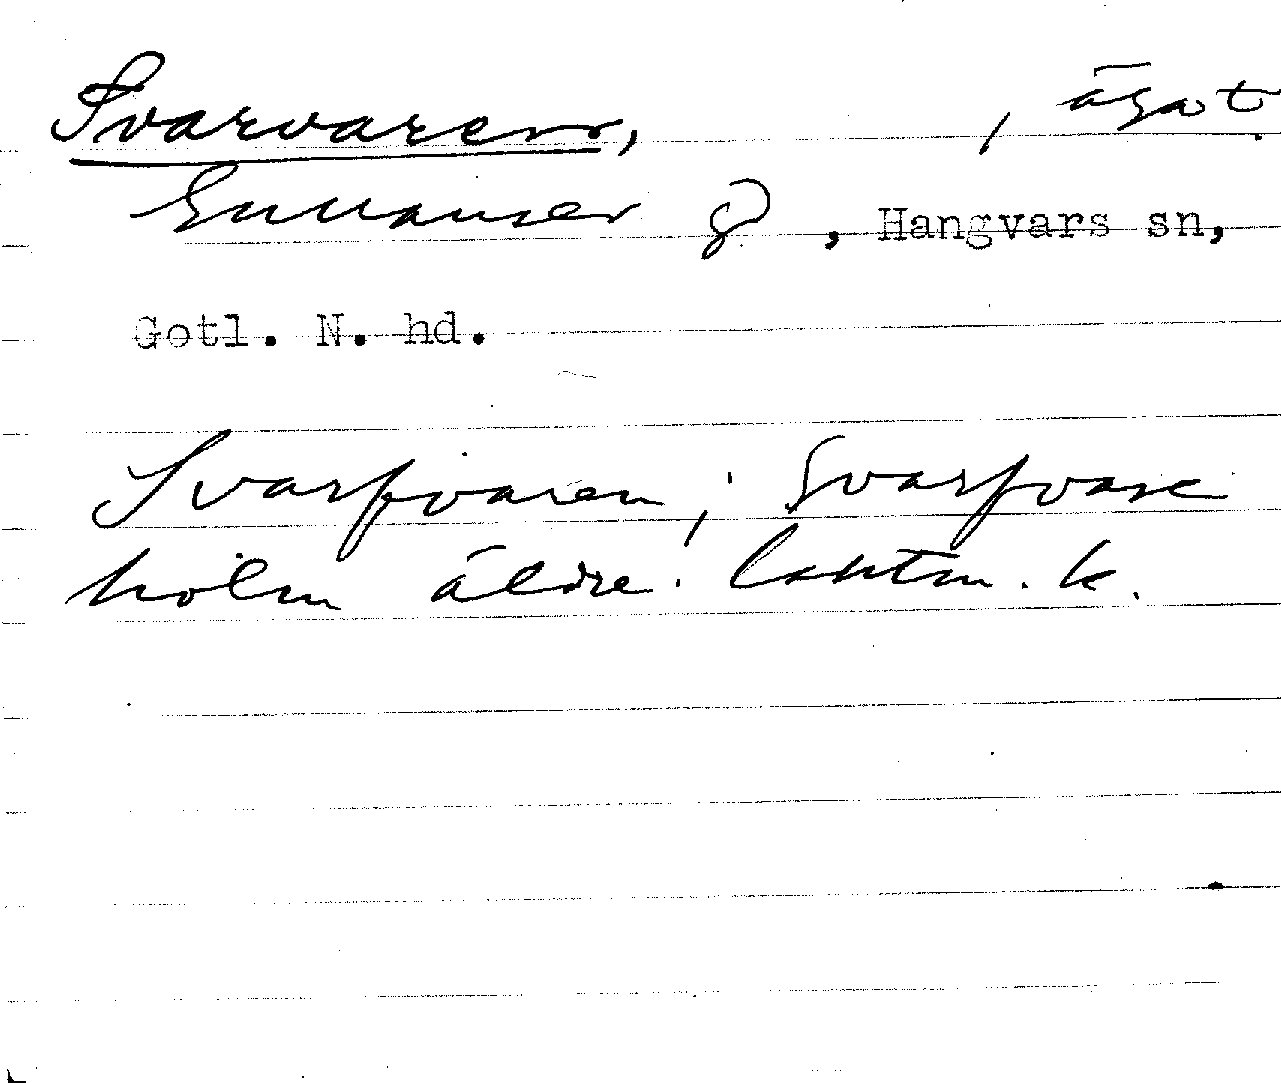 Svarvaren, , ägot.
g , Hangvars sn,
Gotl. N. hd.
Svarfvaren ; Svarfvare
holm äldre. lantm. k.